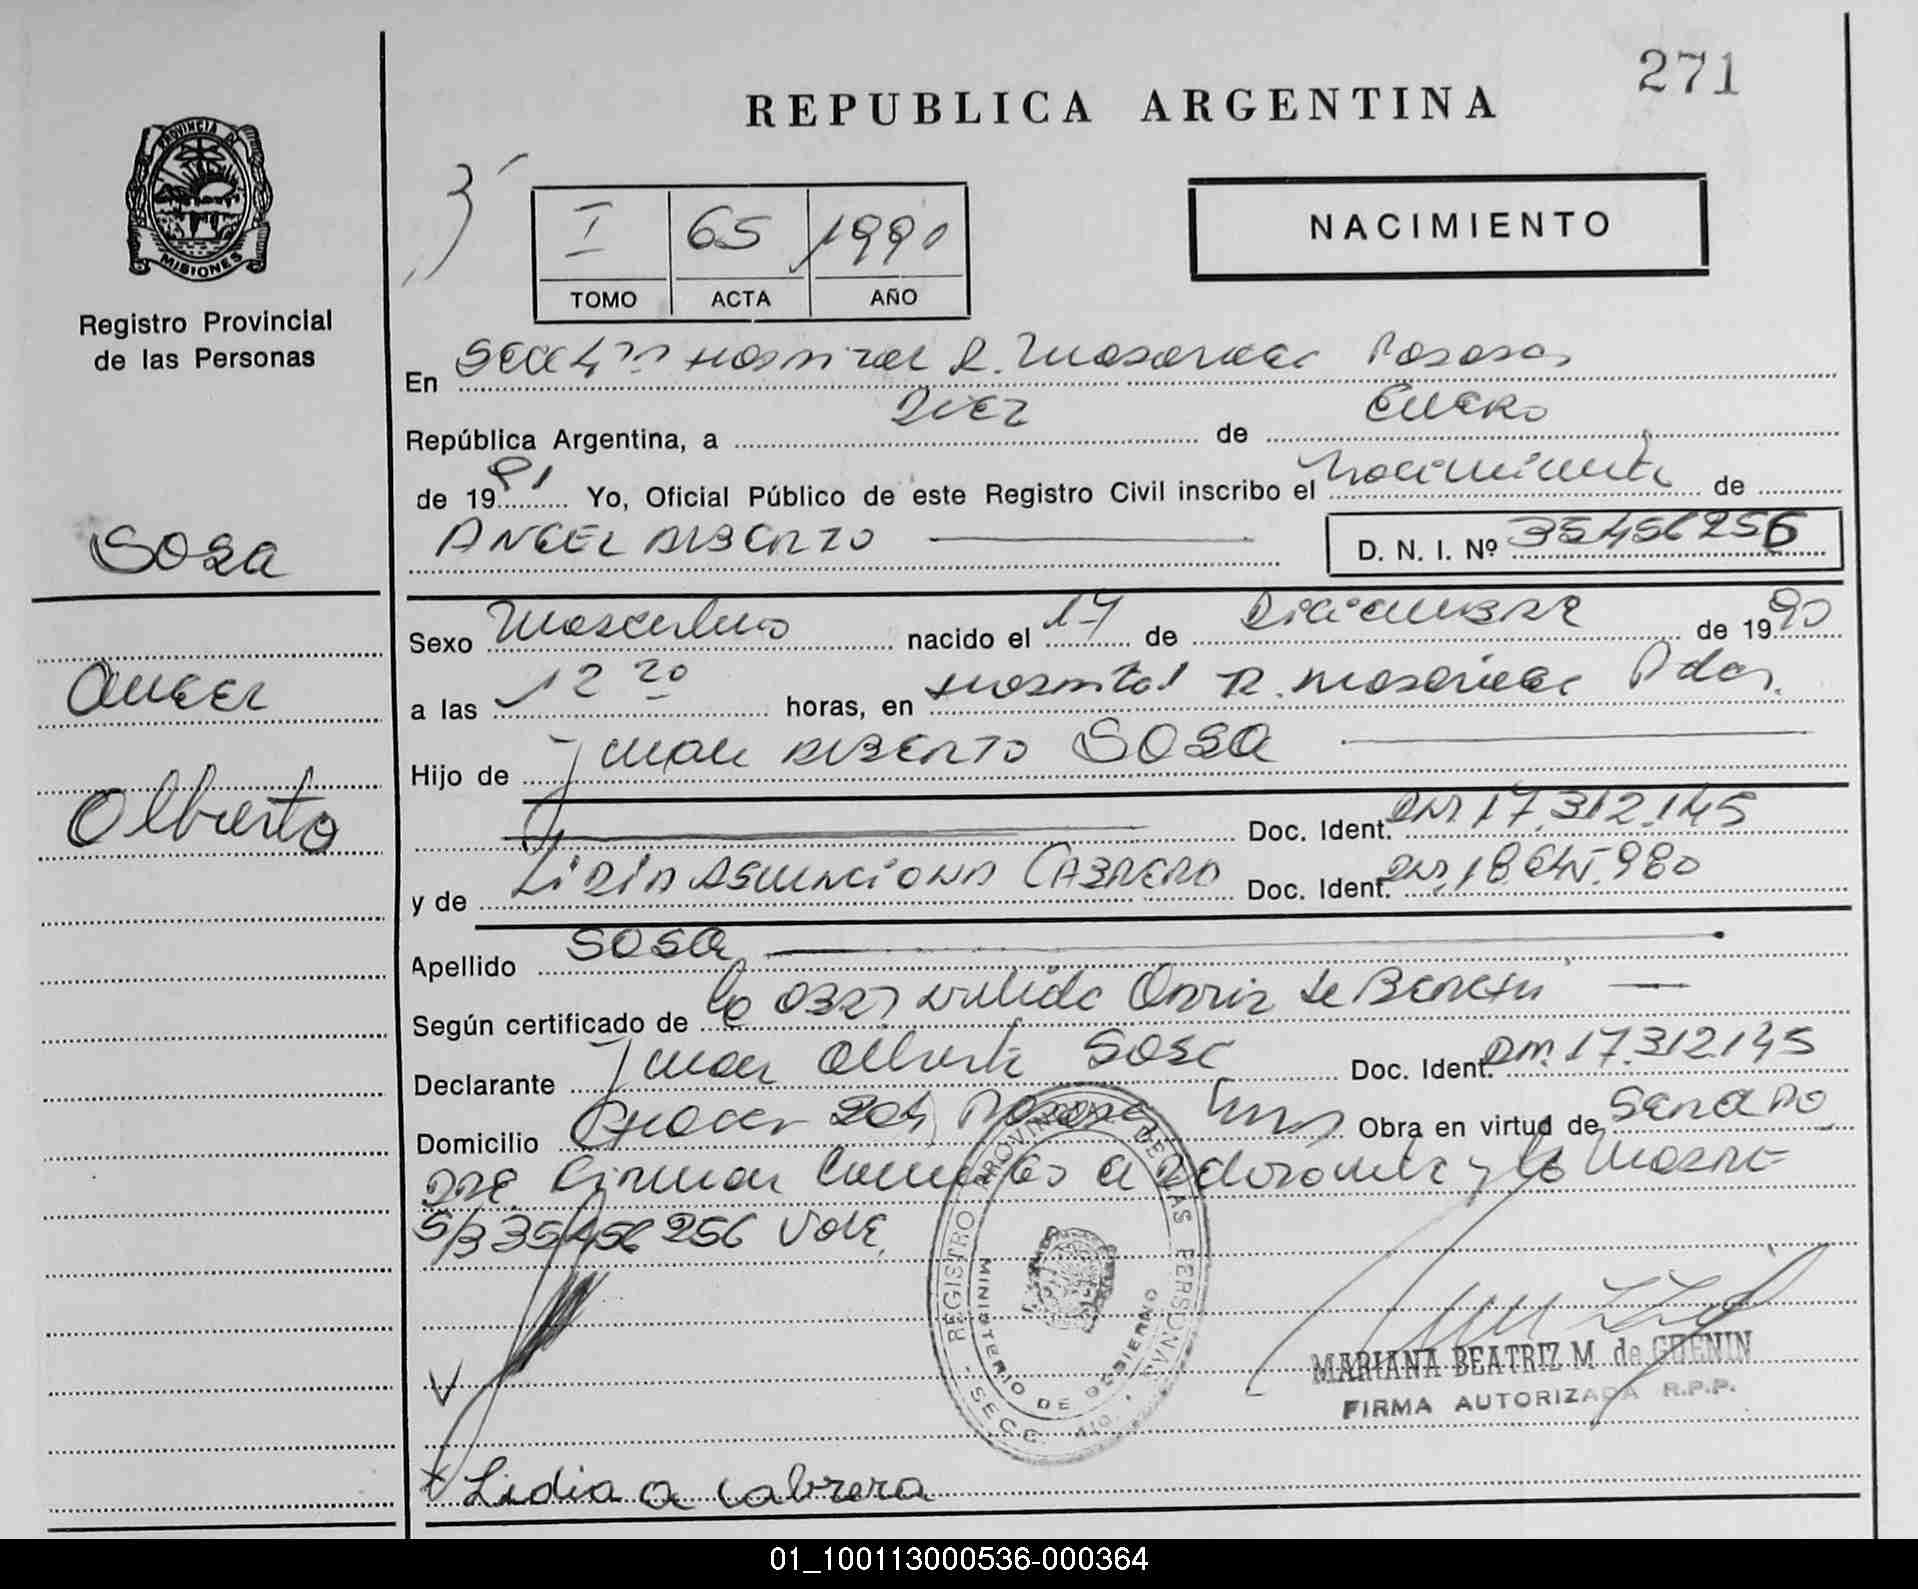 271
REPUBLICA ARGENTINA
PROVINCIA DE
MISIONES
Registro Provincial
de las Personas
I 65 1990
TOMO ACTA AÑO
NACIMIENTO
En Secc 4ta Hospital R. Madariaga Posadas
República Argentina, a Diez de Enero
de 1991 Yo, Oficial Público de este Registro Civil inscribo el nacimiento de
ANGEL ALBERTO D. N. I. Nº 35456256
Sosa
Angel
Alberto
Sexo Masculino nacido el 17 de Diciembre de 1990
a las 12 20 horas, en Hospital R. Madariaga Pdas.
Hijo de Juan ALBERTO SOSA
Doc. Ident. DNI 17.312.145
y de LIDIA ASUNCIONA CABRERA Doc. Ident. DNI. 18.645.980
Apellido SOSA
Según certificado de la OBST Nélida Ortiz de
Declarante Juan Alberto Sosa Doc. Ident. DNI. 17.312.145
Domicilio 204 Posadas Obra en virtud de
firman a y la Madre
S/B 35456256 VALE
REGISTRO PROVINCIAL DE LAS PERSONAS
MINISTERIO DE GOBIERNO
MARIANA BEATRIZ M. de GUENIN
FIRMA AUTORIZADA R.P.P.
Lidia a cabrera
01_100113000536-000364